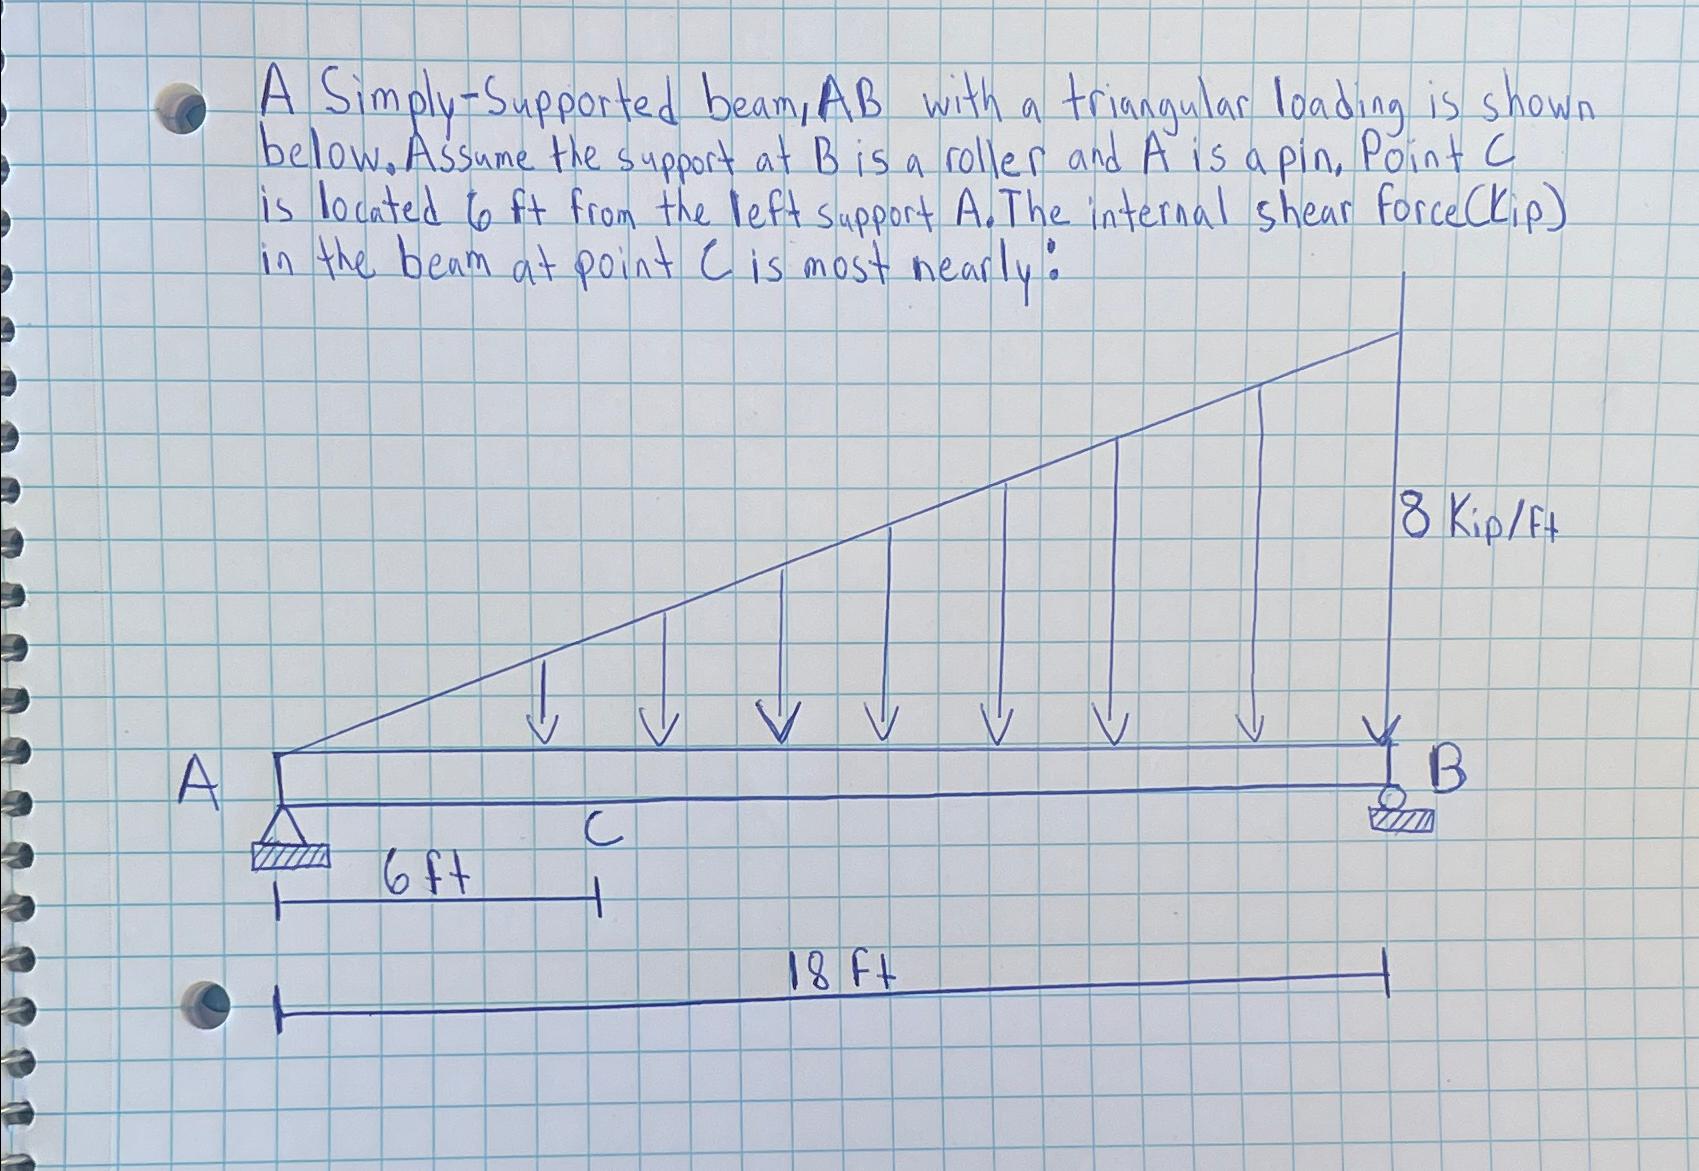 A Simply-Supported beam, AB with a triangular loading is shown
below. Assume the support at B is a roller and A is a pin. Point C
is located 6 ft from the left support A. The internal shear force (Kip)
in the beam at point C is most nearly:
8 Kip/ft
A
B
C
6 ft
18 ft